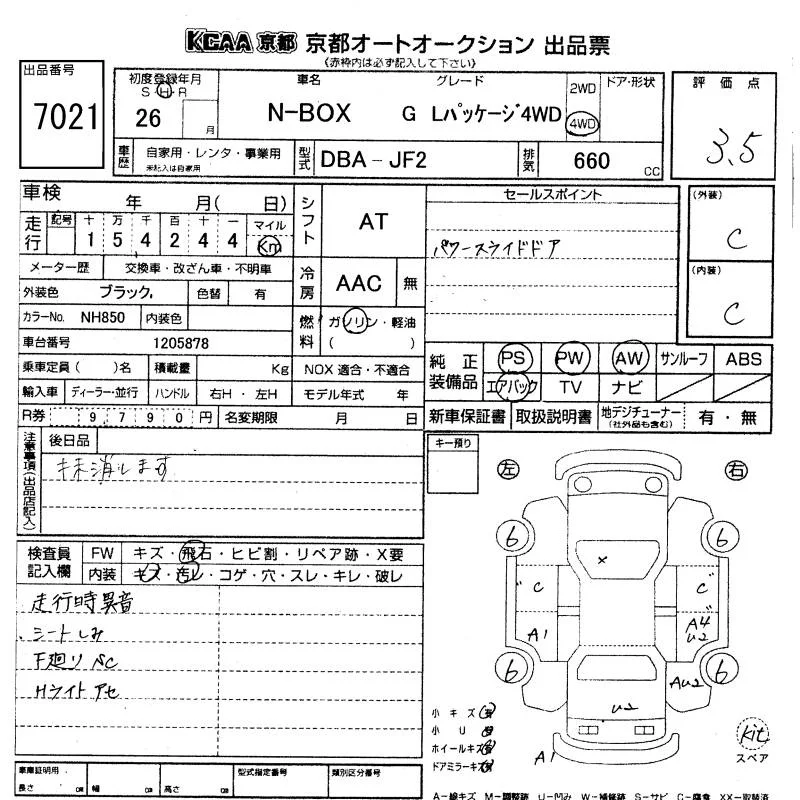 KCAA 京都 京都オートオークション 出品票
(赤枠内は必ず記入して下さい)
出品番号
7021
初度登録年月
S・H・R
26 月
車名
N-BOX
グレード
G Lパッケージ4WD
2WD
4WD
ドア・形状
評価点
3.5
車歴
自家用・レンタ・事業用
未記入は自家用
型式
DBA-JF2
排気
660 CC
車検
年 月( 日)
走行
記号 十 万 千 百 十 一 マイル
1 5 4 2 4 4 Km
メーター歴 交換車・改ざん車・不明車
外装色 ブラック, 色替 有
カラーNo. NH850 内装色
車台番号 1205878
乗車定員( )名 積載量 Kg
輸入車 ディーラー・並行 ハンドル 右H・左H
R券 9,790円 名変期限 月 日
シフト
AT
冷房
AAC 無
燃料
ガソリン・軽油
( )
NOX 適合・不適合
モデル年式 年
セールスポイント
パワースライドドア
(外装)
C
(内装)
C
純正装備品
PS PW AW サンルーフ ABS
エアバック TV ナビ
新車保証書 取扱説明書 地デジチューナー(社外品も含む) 有・無
注意事項(出品店記入)
後日品
抹消します
キー預り
左
右
検査員記入欄
FW キズ・飛石・ヒビ割・リペア跡・X要
内装 キズ・汚レ・コゲ・穴・スレ・キレ・破レ
走行時異音
シートしみ
下廻りSC
Hライトアセ
6 6
x
C C
A1 A4 U2
6 6
AU2
U2
A1
小キズ
小U
ホイールキズ
ドアミラーキズ
kit
スペア
車庫証明用
長さ cm 幅 cm 高さ cm
型式指定番号
類別区分番号
A-線キズ M-調整跡 U-凹み W-補修跡 S-サビ C-腐食 XX-取替済